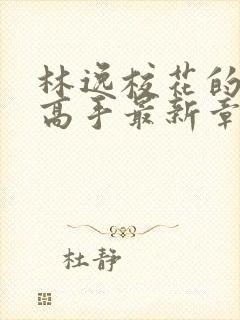 林逸校花的
高手最新章
杜静